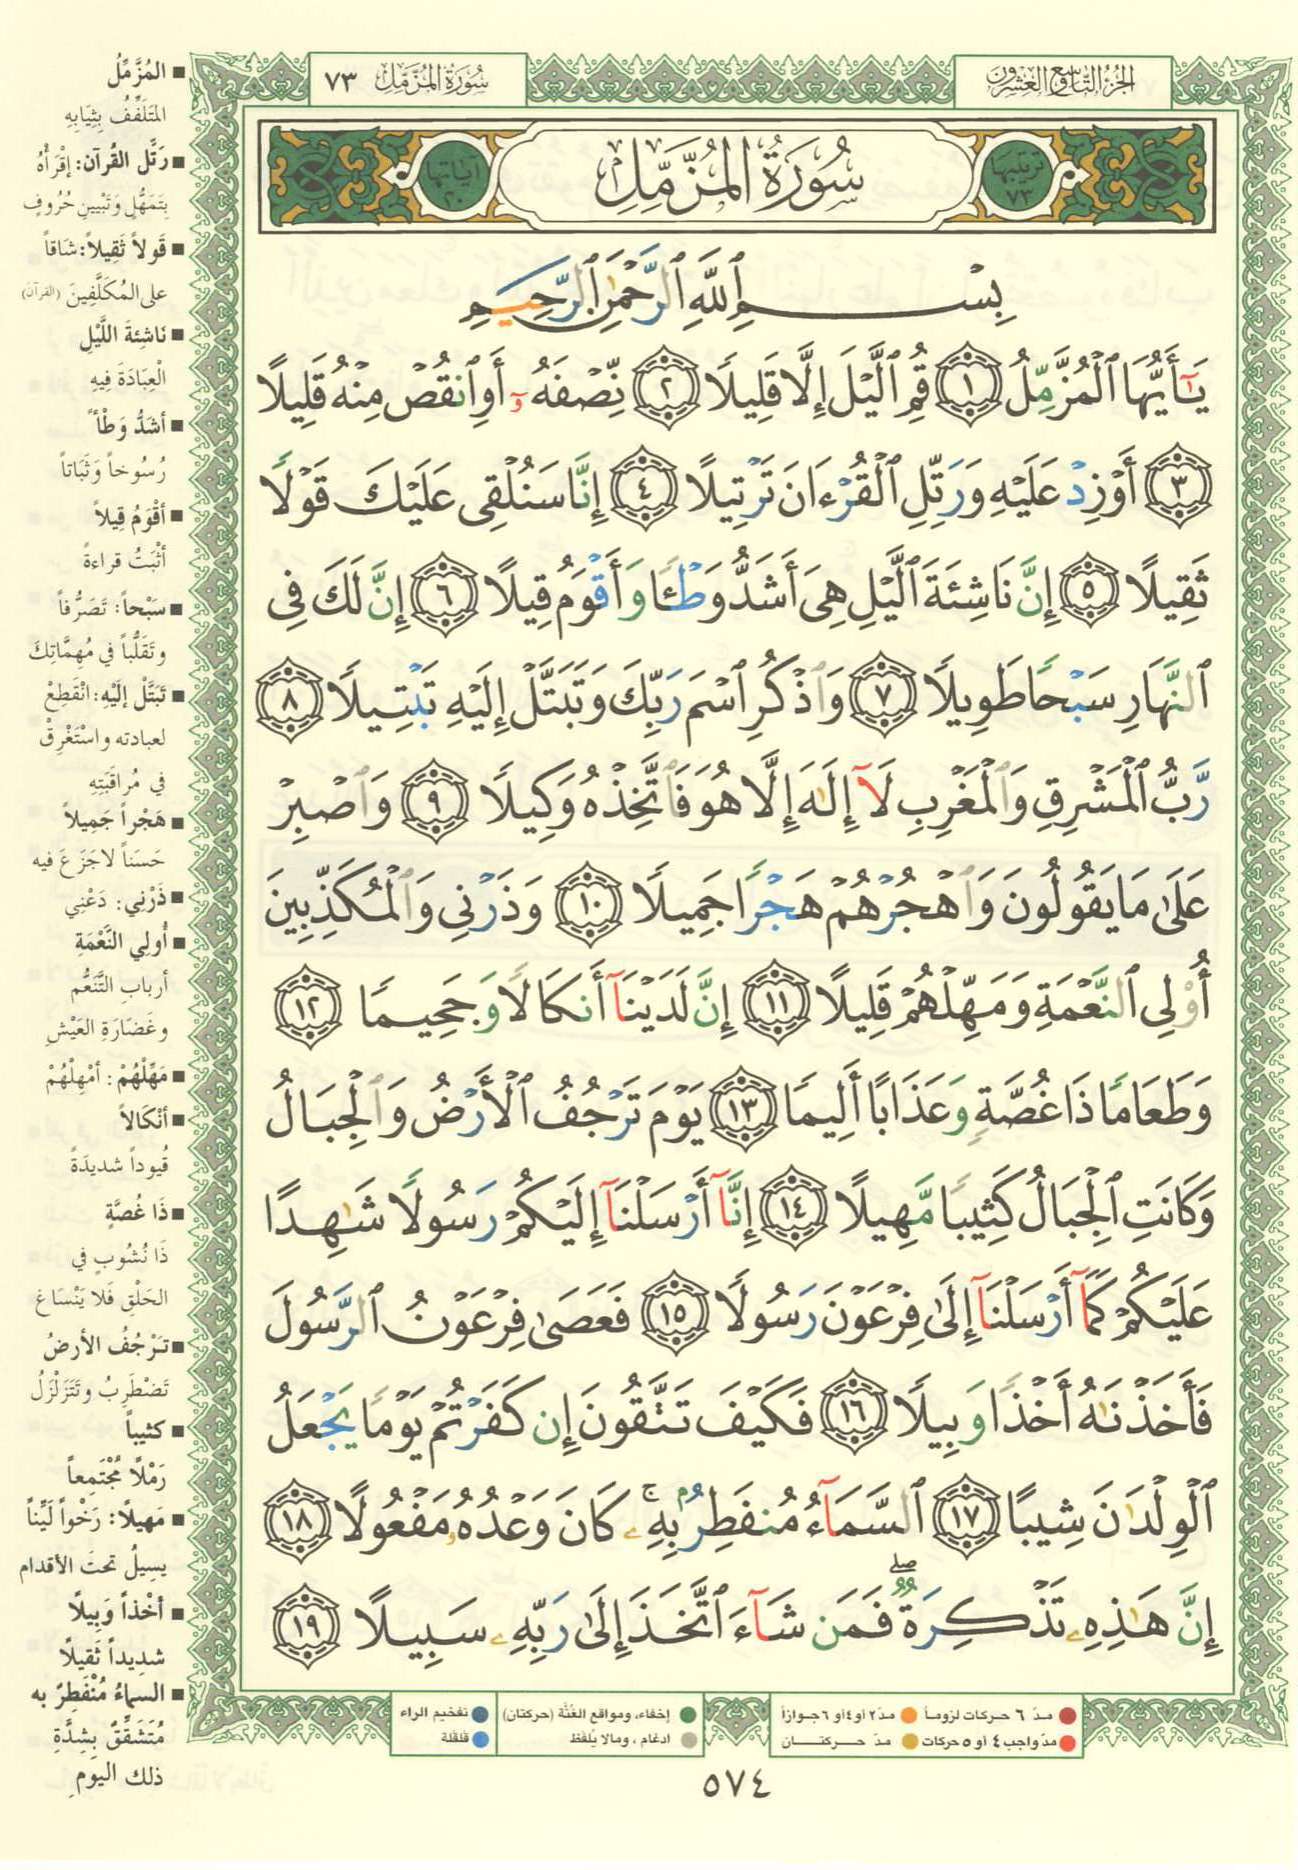 الجزء التاسع والعشرون
سورة المزمل ٧٣
ترتيبها ٧٣
سُورَةُ المُزَّمِّلِ
آياتها ٢٠
بِسْمِ ٱللَّهِ ٱلرَّحْمَٰنِ ٱلرَّحِيمِ
يَٰٓأَيُّهَا ٱلْمُزَّمِّلُ ١ قُمِ ٱلَّيْلَ إِلَّا قَلِيلًا ٢ نِّصْفَهُۥٓ أَوِ ٱنقُصْ مِنْهُ قَلِيلًا
٣ أَوْ زِدْ عَلَيْهِ وَرَتِّلِ ٱلْقُرْءَانَ تَرْتِيلًا ٤ إِنَّا سَنُلْقِى عَلَيْكَ قَوْلًا
ثَقِيلًا ٥ إِنَّ نَاشِئَةَ ٱلَّيْلِ هِىَ أَشَدُّ وَطْـًٔا وَأَقْوَمُ قِيلًا ٦ إِنَّ لَكَ فِى
ٱلنَّهَارِ سَبْحًا طَوِيلًا ٧ وَٱذْكُرِ ٱسْمَ رَبِّكَ وَتَبَتَّلْ إِلَيْهِ تَبْتِيلًا ٨
رَّبُّ ٱلْمَشْرِقِ وَٱلْمَغْرِبِ لَآ إِلَٰهَ إِلَّا هُوَ فَٱتَّخِذْهُ وَكِيلًا ٩ وَٱصْبِرْ
عَلَىٰ مَا يَقُولُونَ وَٱهْجُرْهُمْ هَجْرًا جَمِيلًا ١٠ وَذَرْنِى وَٱلْمُكَذِّبِينَ
أُو۟لِى ٱلنَّعْمَةِ وَمَهِّلْهُمْ قَلِيلًا ١١ إِنَّ لَدَيْنَآ أَنكَالًا وَجَحِيمًا ١٢
وَطَعَامًا ذَا غُصَّةٍ وَعَذَابًا أَلِيمًا ١٣ يَوْمَ تَرْجُفُ ٱلْأَرْضُ وَٱلْجِبَالُ
وَكَانَتِ ٱلْجِبَالُ كَثِيبًا مَّهِيلًا ١٤ إِنَّآ أَرْسَلْنَآ إِلَيْكُمْ رَسُولًا شَٰهِدًا
عَلَيْكُمْ كَمَآ أَرْسَلْنَآ إِلَىٰ فِرْعَوْنَ رَسُولًا ١٥ فَعَصَىٰ فِرْعَوْنُ ٱلرَّسُولَ
فَأَخَذْنَٰهُ أَخْذًا وَبِيلًا ١٦ فَكَيْفَ تَتَّقُونَ إِن كَفَرْتُمْ يَوْمًا يَجْعَلُ
ٱلْوِلْدَٰنَ شِيبًا ١٧ ٱلسَّمَآءُ مُنفَطِرٌۢ بِهِۦ ۚ كَانَ وَعْدُهُۥ مَفْعُولًا ١٨
إِنَّ هَٰذِهِۦ تَذْكِرَةٌ ۖ فَمَن شَآءَ ٱتَّخَذَ إِلَىٰ رَبِّهِۦ سَبِيلًا ١٩
■ المُزَّمِّلُ
المُتَلَفِّفُ بِثِيَابِهِ
■ رَتِّلِ القُرآنَ: إقْرَأْهُ
بِتَمَهُّلٍ وَتَبْيينِ حُرُوفٍ
■ قَولاً ثَقِيلاً: شَاقاً
على المُكَلَّفِينَ (القرآن)
■ نَاشِئةَ اللَّيْلِ
الْعِبَادَةَ فِيهِ
■ أشَدُّ وَطْأً
رُسُوخاً وَثَبَاتاً
■ أقْوَمُ قِيلاً
أثْبَتُ قراءةً
■ سَبْحاً: تَصَرُّفاً
وتَقَلُّباً في مُهِمَّاتِكَ
■ تَبَتَّلْ إلَيْهِ: انْقَطِعْ
لعبادته واسْتَغْرِقْ
في مُراقَبَتِهِ
■ هَجْراً جَمِيلاً
حَسَناً لا جَزَعَ فيه
■ ذَرْنِي: دَعْنِي
■ أُولِي النَّعْمَةِ
أربابِ التَّنَعُّمِ
وغَضَارَةِ العَيْشِ
■ مَهِّلْهُمْ: أمْهِلْهُمْ
■ أنْكَالاً
قُيوداً شديدَةً
■ ذَا غُصَّةٍ
ذَا نُشُوبٍ في
الحَلْقِ فَلا يَنْسَاغ
■ تَرْجُفُ الأرضُ
تَضْطَرِبُ وتَتَزَلْزَلُ
■ كثيباً
رَمْلاً مُجْتَمِعاً
■ مَهِيلاً: رَخْواً لَيِّناً
يسِيلُ تحتَ الأقدام
■ أخْذاً وَبِيلاً
شديداً ثَقِيلاً
■ السماءُ مُنْفَطِرٌ به
مُتَشَقِّقٌ بِشِدَّةِ
ذلك اليومِ
مدّ ٦ حركات لزوماً مدّ ٢ أو ٤ أو ٦ جوازاً
مدّ واجب ٤ أو ٥ حركات مدّ حركتان
إخفاء، ومواقع الغُنَّة (حركتان) تفخيم الراء
ادغام، ومالا يُلفَظ قلقلة
٥٧٤